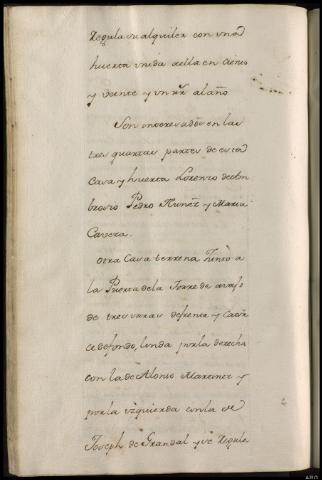 Regula su alquiler con una
huerta unida a ella en ciento
y veinte y un rr al año
Son interesados en las
tres quartas partes de esta
Casa y huerta Lorenzo de
Pedro Nuñez y Maria
Otra Casa terrena Junto a
la Puerta de la Torre de avajo
de tres varas de frente y Cator
ce de fondo, linda por la derecha
con la de Alonso Martinez y
por la izquierda con la de
Joseph de Grandal que Regula